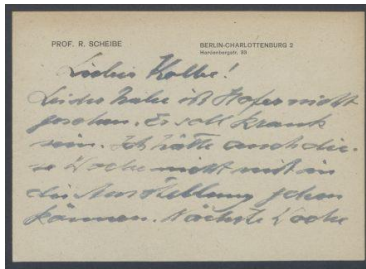 PROF. R. SCHEIBE
BERLIN-CHARLOTTENBURG 2
Hardenbergstr. 33
Lieber Kolbe!
Leider habe ich Hofer nicht
gesehen. Er soll krank
sein. Ich hätte auch die-
se Woche nicht mit in
die Ausstellung gehen
können. Nächste Woche